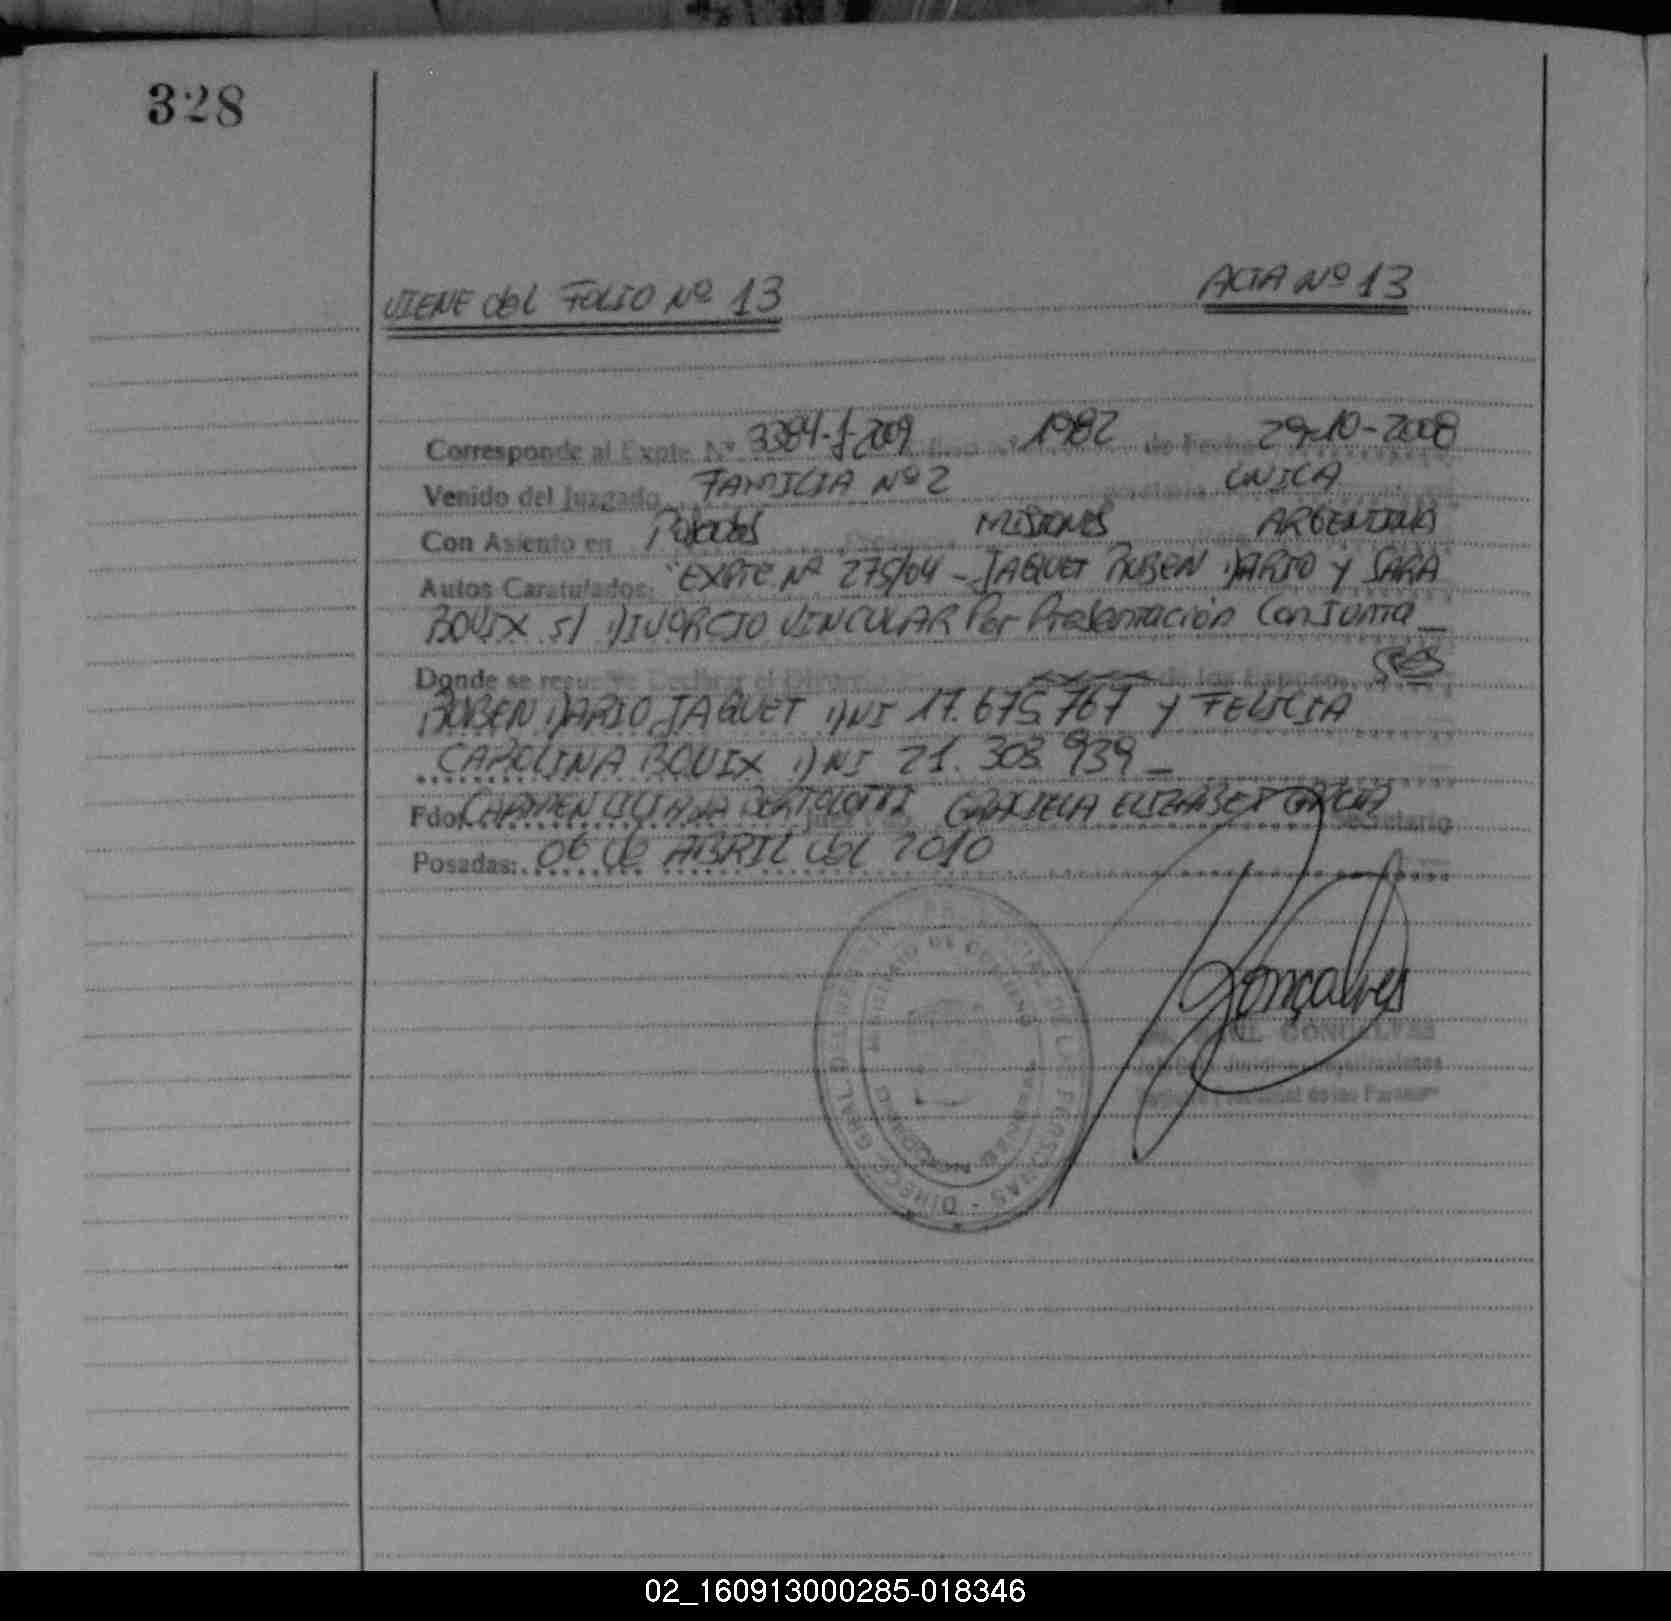 328
VIENE del FOLIO Nº 13 ACTA Nº 13
Corresponde al Expte. Nº 3384-J-2009 1982 de Fecha 29-10-2008
Venido del Juzgado FAMILIA Nº 2 UNICA
Con Asiento en Posadas MISIONES ARGENTINA
Autos Caratulados: "EXPTE Nº 275/04 - JAQUET RUBEN DARIO Y SARA
BOUIX s/ DIVORCIO VINCULAR Por Presentación Conjunta
Donde se resuelve Declarar el Divorcio de los Esposos
RUBEN DARIO JAQUET DNI 17.675.767 Y FELICIA
CAROLINA BOUIX DNI 21.303.939
Fdo. CARMEN LILIANA BERTOLOTTI GRACIELA ELIZABET GARCIA Secretario
Posadas: 06 de ABRIL del 2010
Gonçalves
MINISTERIO DE GOBIERNO
DE LAS PERSONAS - DIRECC. GRAL. DE
02_160913000285-018346